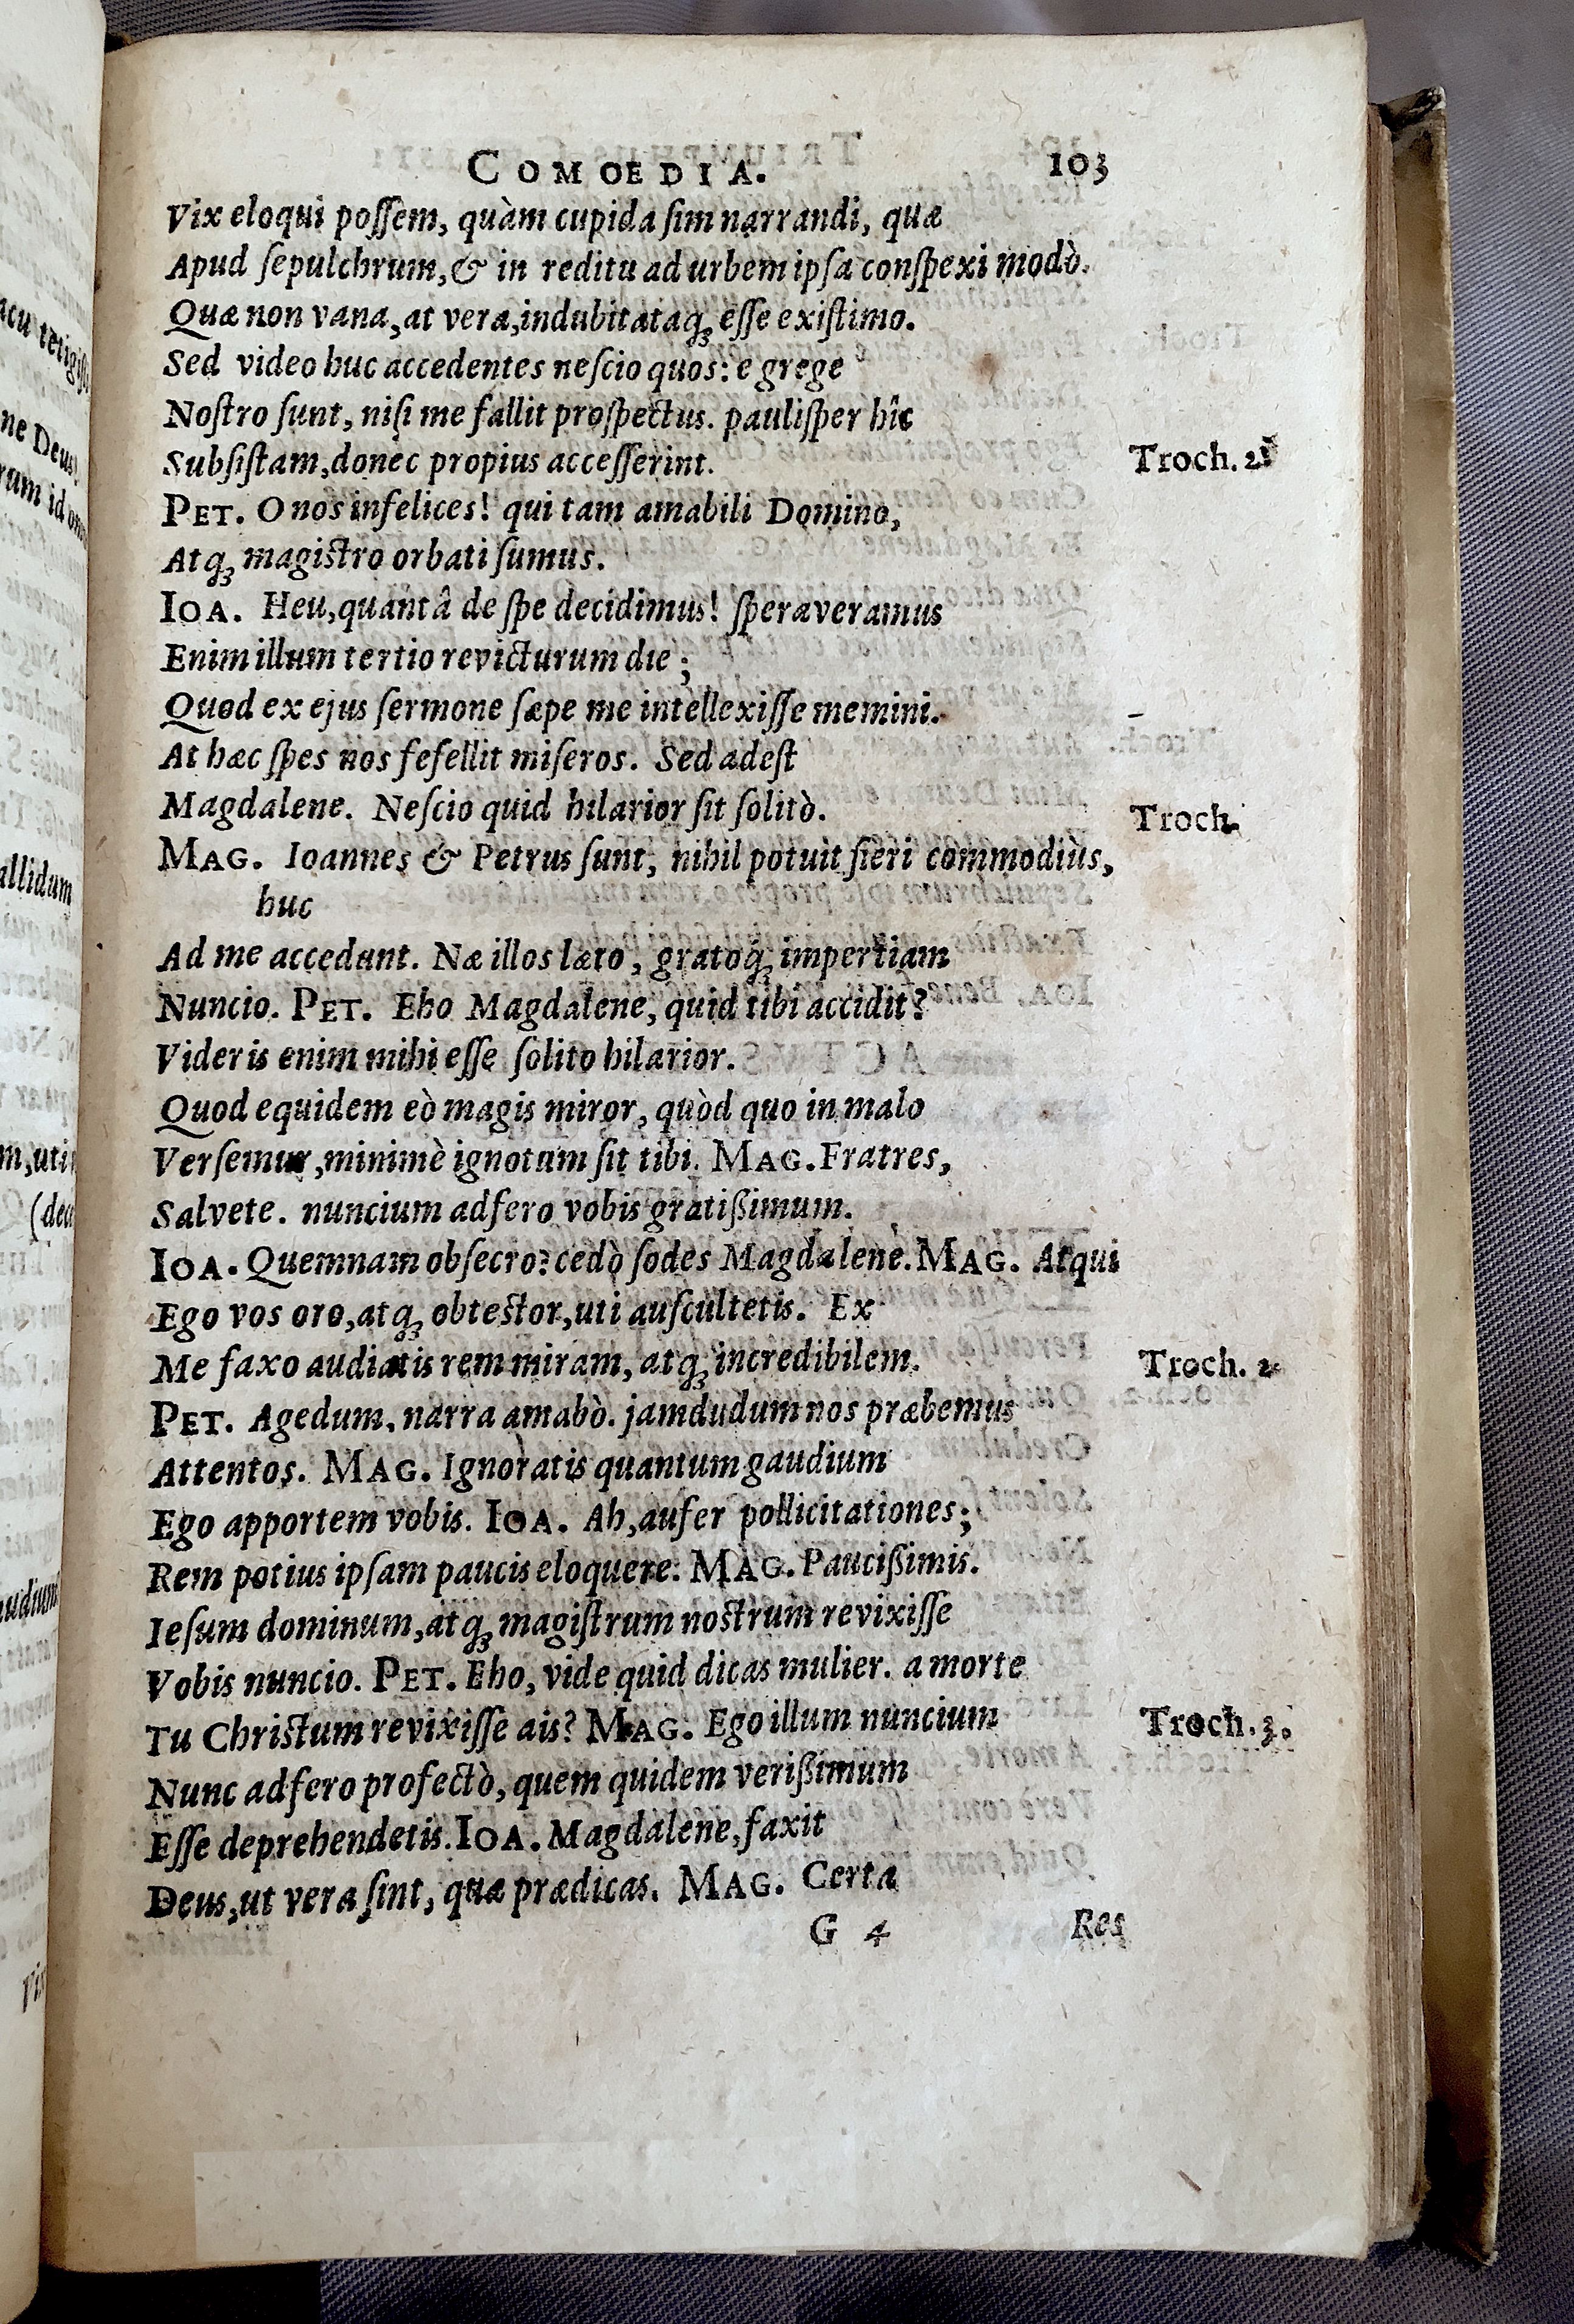 COMOEDIA. 103
Vix eloqui poſſem, quàm cupida ſim narrandi, quæ
Apud ſepulchrum, & in reditu ad urbem ipſa conſpexi modò.
Quæ non vana, at vera, indubitataq́; eſſe exiſtimo.
Sed video huc accedentes neſcio quos: e grege
Noſtro ſunt, niſi me fallit proſpectus. pauliſper hîc
Subſiſtam, donec propius acceſſerint. Troch. 2
PET. O nos infelices! qui tam amabili Domino,
Atq́; magiſtro orbati ſumus.
IOA. Heu, quantâ de ſpe decidimus! ſperaveramus
Enim illum tertio revicturum die;
Quod ex ejus ſermone ſæpe me intellexiſſe memini.
At hæc ſpes nos fefellit miſeros. Sed adeſt
Magdalene. Neſcio quid hilarior ſit ſolitò. Troch.
MAG. Ioannes & Petrus ſunt, nihil potuit fieri commodiùs,
huc
Ad me accedunt. Næ illos læto, gratoq́; impertiam
Nuncio. PET. Eho Magdalene, quid tibi accidit?
Videris enim mihi eſſe ſolito hilarior.
Quod equidem eò magis miror, quòd quo in malo
Verſemur, minimè ignotum ſit tibi. MAG. Fratres,
Salvete. nuncium adfero vobis gratißimum.
IOA. Quemnam obſecro? cedò ſodes Magdalene. MAG. Atqui
Ego vos oro, atq́; obteſtor, uti auſcultetis. Ex
Me faxo audiatis rem miram, atq́; incredibilem. Troch. 2
PET. Agedum, narra amabò. jamdudum nos præbemus
Attentos. MAG. Ignoratis quantum gaudium
Ego apportem vobis. IOA. Ah, aufer pollicitationes;
Rem potius ipſam paucis eloquere. MAG. Paucißimis.
Ieſum dominum, atq́; magiſtrum noſtrum revixiſſe
Vobis nuncio. PET. Eho, vide quid dicas mulier. a morte
Tu Chriſtum revixiſſe ais? MAG. Ego illum nuncium Troch. 3.
Nunc adfero profectò, quem quidem verißimum
Eſſe deprehendetis. IOA. Magdalene, faxit
Deus, ut vera ſint, quæ prædicas. MAG. Certa
G 4 Res